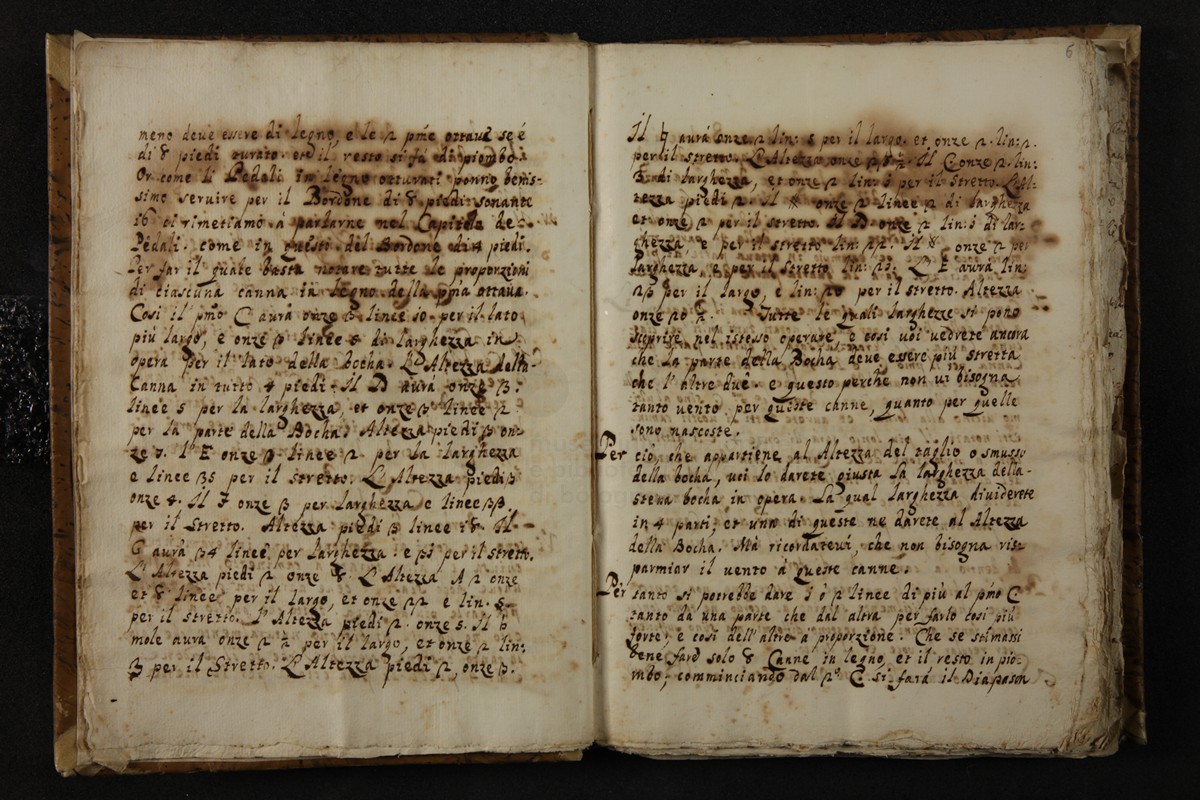 meno deue essere di legno, e le 2 pme ottaue se é
di 8 piedi turato. et il resto si fá di piombo.
Or come li Pedali in legno otturati ponno benis-
simo seruire per il Bordone di 8 piedi sonante
16 ci rimettiamo á parlarne nel Capitolo de
Pedali. come in questi del Bordone di 4 piedi.
Per far il quale basta notare tutte le proporzioni
di ciascuna canna in legno della pma ottaua.
Cosi il pmo C aurá onze 3 linee 10 per il lato
più largo, e onze 3 linee di larghezza in
opera per il lato della bocha. L'Altezza della
Canna in tutto 4 piedi. Il D aurá onze 3.
linee 5 per la larghezza, et onze 3 linee 2
per la parte della Bocha. Altezza piedi 3 on-
ze 7. E onze 3 linee 2 per la larghezza
e linee 35 per il stretto. L'Altezza piedi 3
onze 4. Il F onze 3 per larghezza e linee 33
per il Stretto. Altezza piedi 3 linee 18. Il
G aurá 34 linee per larghezza. e 31 per il stretto.
L'Altezza piedi 2 onze 8. L'Altezza A 2 onze
et 8 linee per il largo, et onze 2 e lin. 5
per il stretto. L'Altezza piedi 2. onze 5. Il b
mole aurá onze 2 per il largo, et onze 2 lin:
3 per il Stretto. L'Altezza piedi 2, onze 3.
Il ♮ aurá onze 2 lin: 5 per il largo. et onze 2. lin: 2.
per il stretto. L'Altezza onze Il C onze 2 lin:
3 di larghezza, et onze 2 lin: 1 per il stretto. L'Al-
tezza piedi 2. Il onze 2 linee 2 di larghezza
et onze 2 per il stretto. Il D onze 2 lin: 1 di lar-
ghezza, e per il stretto lin: 22. Il onze 2 per
larghezza, e per il stretto lin: L'E aurá lin:
23 per il largo, e lin: 20 per il stretto. Altezza
onze 20 Tutte le quali larghezze si pono
scoprire nel istesso operare, e cosi uoi uedrete ancora
che la parte della Bocha deue essere più stretta
che l'altre due. e questo perche non ui bisogna
tanto uento per queste canne, quanto per quelle
sono nascoste.
Per ció, che appartiene al Altezza del taglio o smusso
della bocha, uoi lo darete giusta la larghezza della
stessa bocha in opera. La qual larghezza diuiderete
in 4 parti, et una di queste ne darete al Altezza
della Bocha. Má ricordateui, che non bisogna ris-
parmiar il uento á queste canne.
Per tanto si potrebbe dare 1 ó 2 linee di più al pmo C
tanto da una parte che dal altra per farlo cosi più
forte, e cosi dell'altre á proporzione. Che se stimassi
bene fard solo 8 Canne in legno, et il resto in pio-
mbo; comminciando dal 2° C si fará il Diapason
6